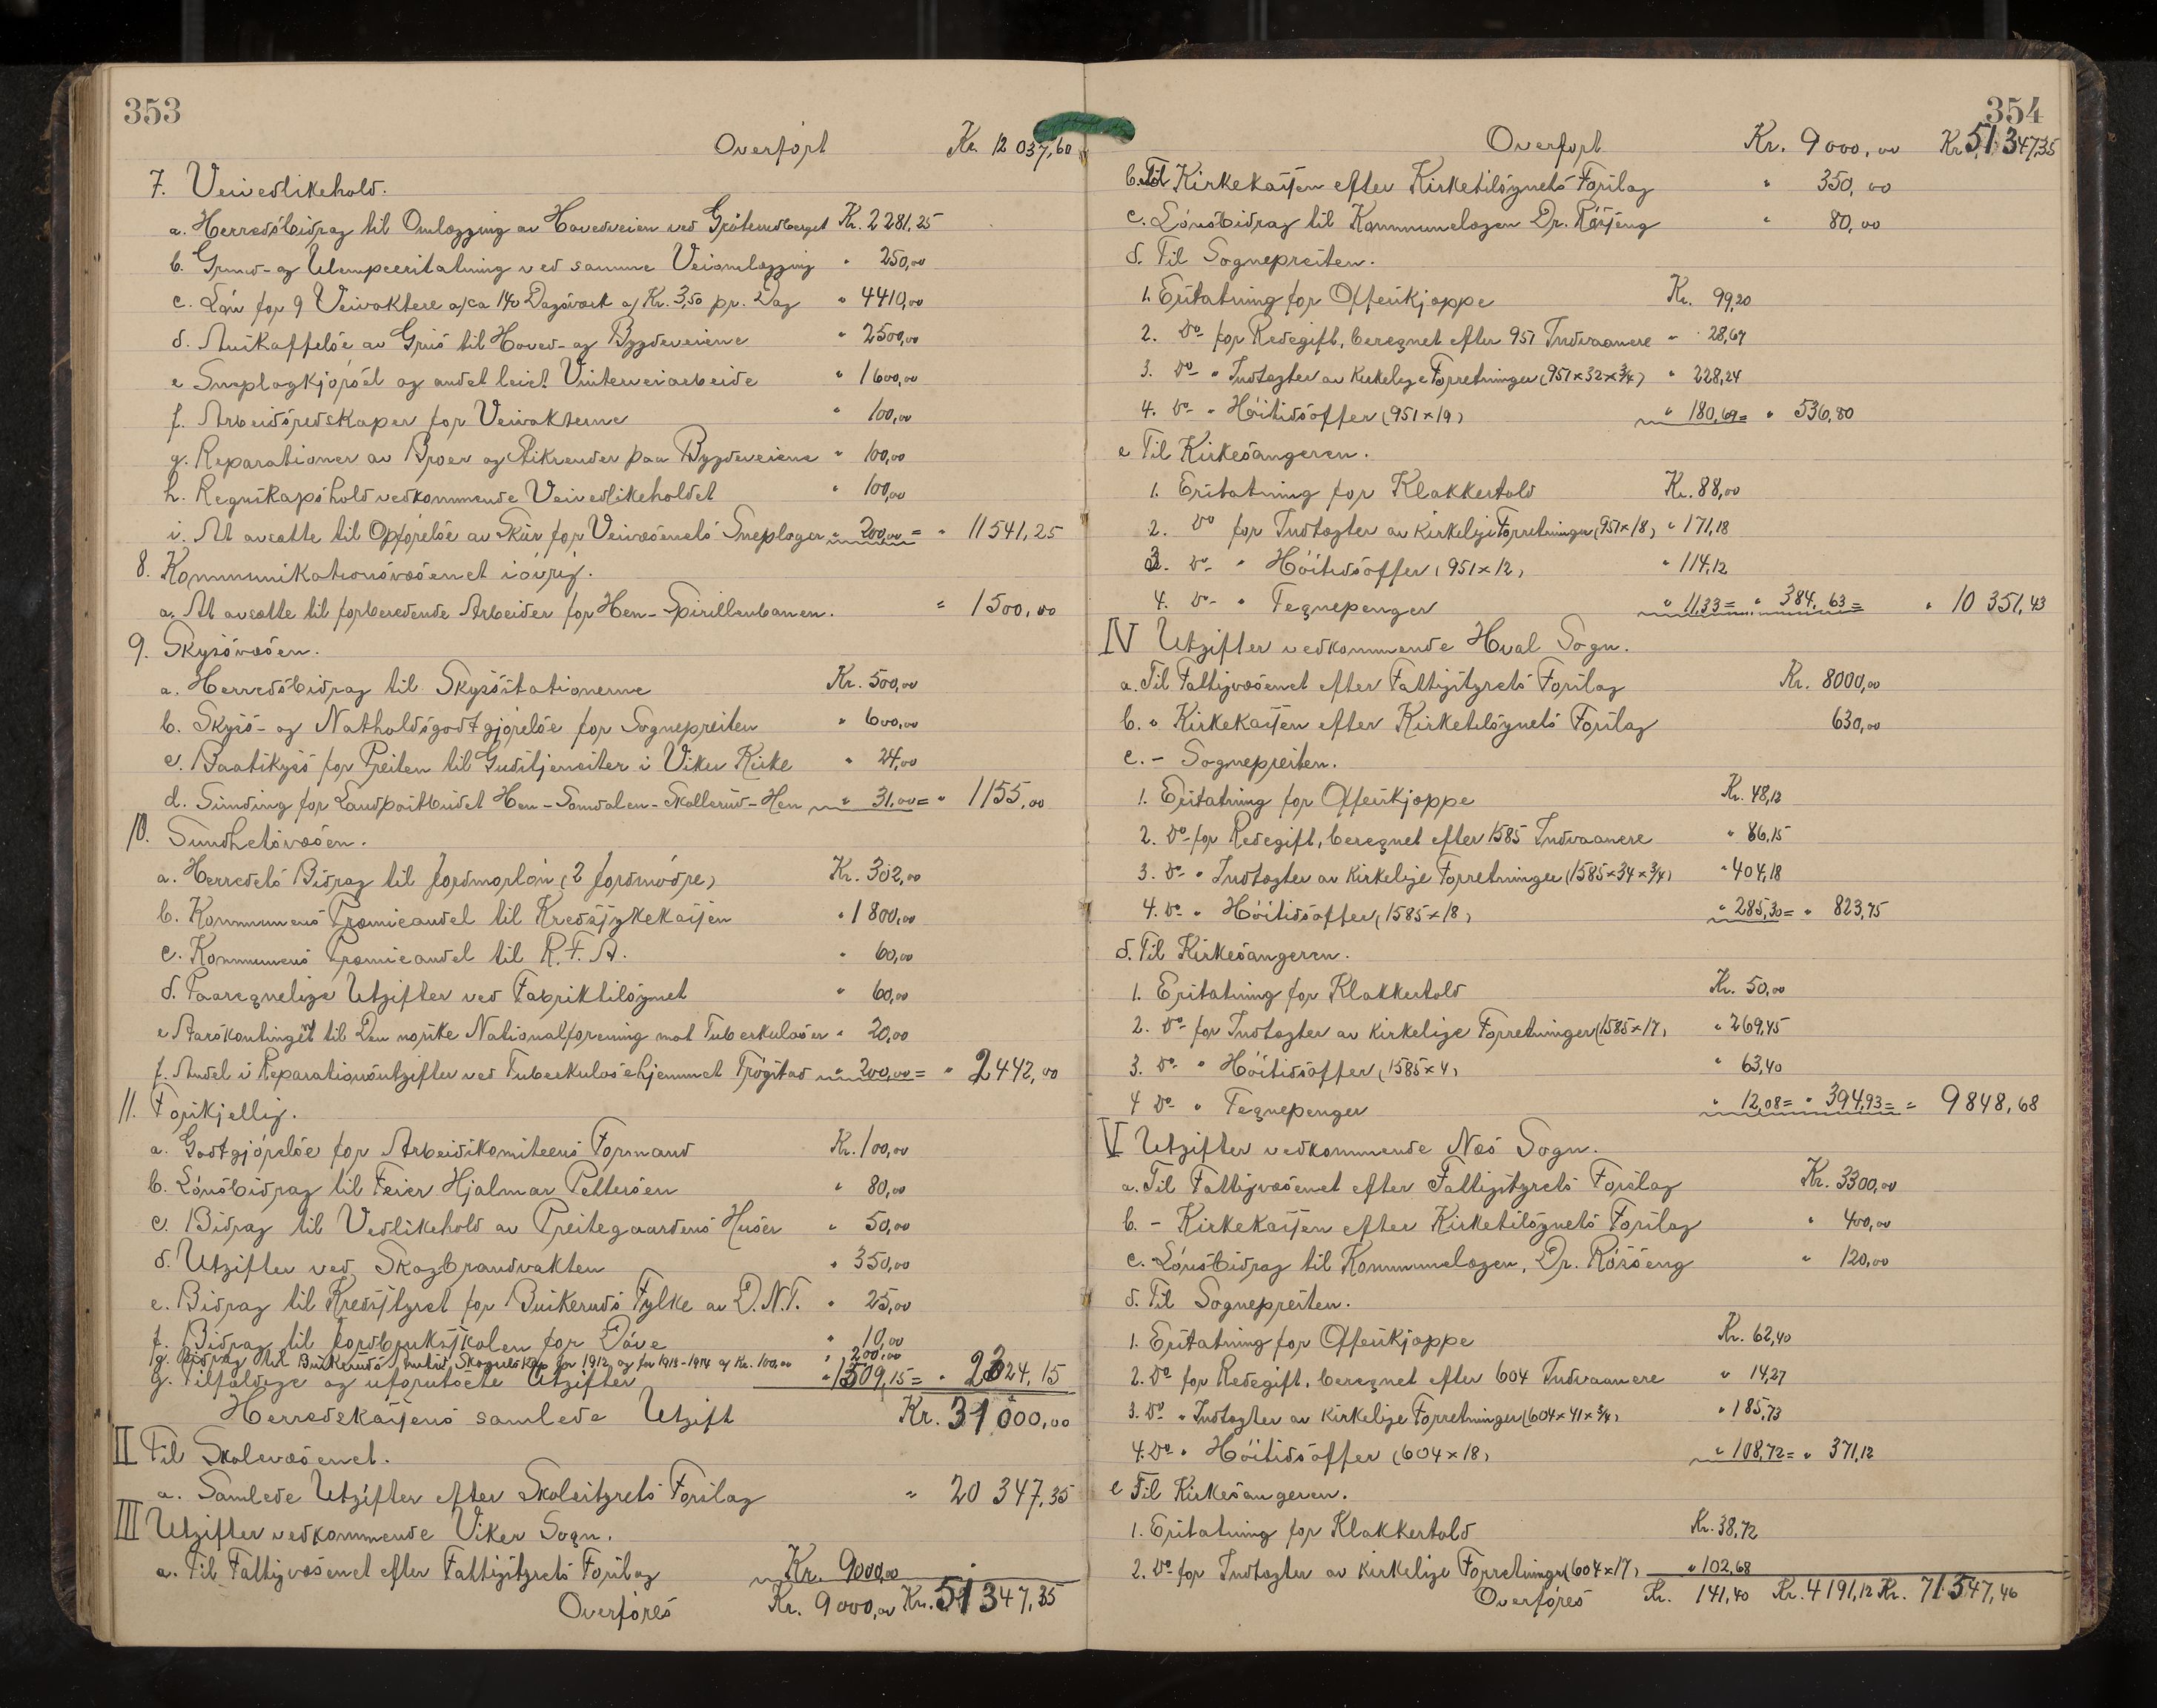 353
Overført Kr. 12 037,60
7. Veivedlikehold.
a. Herredsbidrag til Omlægging av Hovedveien ved Grøterudberget Kr. 2281,25
b. Grund- og Ulempeerstatning ved samme Veiomlægging " 250,00
c. Løn for 9 Veivoktere a/ca 140 Dagsverk a/ Kr. 3,50 pr. Dag " 4410,00
d. Anskaffelse av Grus til Hoved- og Bygdeveiene " 2500,00
e Sneplogkjørsel og andet leiet Vinterveiarbeide " 1600,00
f. Arbeidsredskaper for Veivokterne " 100,00
g. Reparationer av Broer og Stikrender paa Bygdeveiene " 100,00
h. Regnskapshold vedkommende Veivedlikeholdet " 100,00
i. At avsætte til Opførelse av Skur for Veivæsenets Sneploger " 200,00 = " 11541,25
8. Kommunikationsvæsenet iøvrig.
a. At avsætte til forberedende Arbeider for Hen-Spirillenbanen. = 1500,00
9. Skysvæsen.
a. Herredsbidrag til Skysstationerne Kr. 500,00
b. Skyss- og Natholdsgodtgjørelse for Sognepresten " 600,00
c. Baatskyss for Presten til Gudstjenester i Viker Kirke " 24,00
d. Sinding for Landpostbudet Hen-Somdalen-Skollerud-Hen " 31,00 = " 1155,00
10. Sundhetsvæsen.
a. Herredets Bidrag til Jordmorløn (2 Jordmødre) Kr. 302,00
b. Kommunens Præmieandel til Kredssykekassen " 1800,00
c. Kommunens Præmieandel til R.F.A. " 60,00
d. Paaregnelige Utgifter ved Fabriktilsynet " 60,00
e Aarskontingent til Den norske Nationalforening mot Tuberkulosen " 20,00
f. Andel i Reparationsutgifter ved Tuberkulosehjemmet Trøgstad " 200,00 = " 2442,00
11. Forskjellig.
a. Godtgjørelse for Arbeidskomiteens Formand Kr. 100,00
b. Lønsbidrag til Feier Hjalmar Pettersen " 80,00
c. Bidrag til Vedlikehold av Prestegaardens Huser " 50,00
d. Utgifter ved Skogbrandvakten " 350,00
e. Bidrag til Kredsstyret for Buskeruds Fylke av D.N.T. " 25,00
f. Bidrag til Jordbruksskolen for Døve " 10,00
g. Bidrag til Buskeruds Skogselskap for 1912 og for 1913-1914 a/ Kr. 100,00 " 200,00
g. Tilfældige og uforutsete Utgifter " 1509,15 = " 2324,15
Herredskassens samlede Utgift Kr. 31000,00
II Til Skolevæsenet.
a. Samlede Utgifter efter Skolestyrets Forslag " 20 347,35
III Utgifter vedkommende Viker Sogn.
a. Til Fattigvæsenet efter Fattigstyrets Forslag Kr. 9000,00
Overføres Kr. 9000,00 Kr. 51347,35
354
Overført Kr. 9000,00 Kr. 51347,35
b. Til Kirkekassen efter Kirketilsynets Forslag " 350,00
c. Lønsbidrag til Kommunelægen Dr. Røsseng " 80,00
d. Til Sognepresten.
1. Erstatning for Offerskjæppe Kr. 99,20
2. Do for Redegift, beregnet efter 951 Indvaanere " 28,67
3. Do " Indtægter av kirkelige Forretninger (951×32×3/4) " 228,24
4. Do " Høitidsoffer (951×19) " 180,69 = " 536,80
e Til Kirkesangeren.
1. Erstatning for Klokkertold Kr. 88,00
2. Do for Indtægter av kirkelige Forretninger (951×18) " 171,18
3. Do " Høitidsoffer (951×12) " 114,12
4. Do " Tegnepenger " 11,33 = " 384,63 = " 10 351,43
IV Utgifter vedkommende Hval Sogn.
a. Til Fattigvæsenet efter Fattigstyrets Forslag Kr. 8000,00
b. " Kirkekassen efter Kirketilsynets Forslag 630,00
c. - Sognepresten.
1. Erstatning for Offerskjæppe Kr. 48,12
2. Do for Redegift, beregnet efter 1585 Indvaanere " 86,15
3. Do " Indtægter av kirkelige Forretninger (1585×34×3/4) " 404,18
4. Do " Høitidsoffer (1585×18) " 285,30 = " 823,75
d. Til Kirkesangeren.
1. Erstatning for Klokkertold Kr. 50,00
2. Do for Indtægter av kirkelige Forretninger (1585×17) " 269,45
3. Do " Høitidsoffer (1585×4) " 63,40
4 Do " Tegnepenger " 12,08 = " 394,93 = = 9848,68
V Utgifter vedkommende Næs Sogn.
a. Til Fattigvæsenet efter Fattigstyrets Forslag Kr. 3300,00
b. - Kirkekassen efter Kirketilsynets Forslag " 400,00
c. Lønsbidrag til Kommunelægen, Dr. Røsseng " 120,00
d. Til Sognepresten.
1. Erstatning for Offerskjæppe Kr. 62,40
2. Do for Redegift, beregnet efter 604 Indvaanere " 14,27
3. Do " Indtægter av kirkelige Forretninger (604×41×3/4) " 185,73
4. Do " Høitidsoffer (604×18) " 108,72 = " 371,12
e Til Kirkesangeren.
1. Erstatning for Klokkertold Kr. 38,72
2. Do for Indtægter av kirkelige Forretninger (604×17) " 102,68
Overføres Kr. 141,40 Kr. 4191,12 Kr. 71547,46